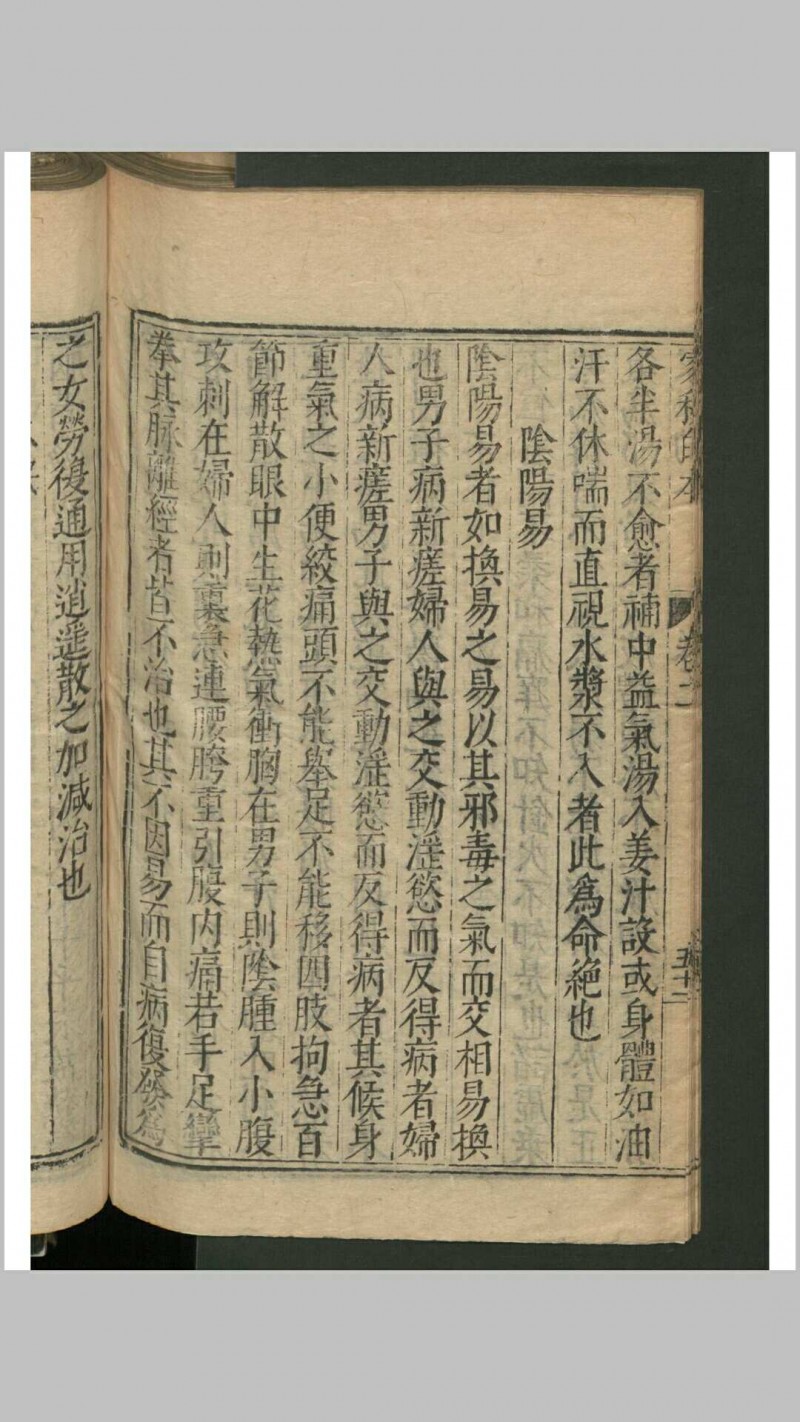 卷二
五十二
各半湯不愈者補中益氣湯入姜汁設或身體如油
汗不休喘而直視水漿不入者此為命絶也
陰陽易
陰陽易者如換易之易以其邪毒之氣而交相易換
也男子病新瘥婦人與之交動淫慾而反得病者婦
人病新瘥男子與之交動淫慾而反得病者其候身
重氣之小便絞痛頭不能舉足不能移四肢拘急百
節解散眼中生花熱氣衝胸在男子則陰腫入小腹
攻刺在婦人則裏急連腰胯重引腹内痛若手足攣
拳其脉離經者皆不治也其不因易而自病復發為
之女勞復通用逍遥散之加減治也